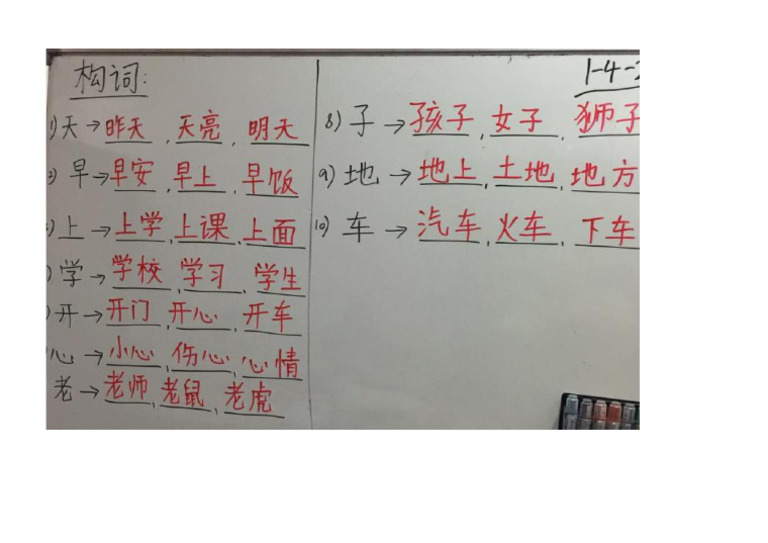 构词:
1) 天 → 昨天, 天亮, 明天
2) 早 → 早安, 早上, 早饭
) 上 → 上学, 上课, 上面
) 学 → 学校, 学习, 学生
) 开 → 开门, 开心, 开车
心 → 小心, 伤心, 心情
老 → 老师, 老鼠, 老虎
1-4-2
8) 子 → 孩子, 女子, 狮子
9) 地 → 地上, 土地, 地方
10) 车 → 汽车, 火车, 下车